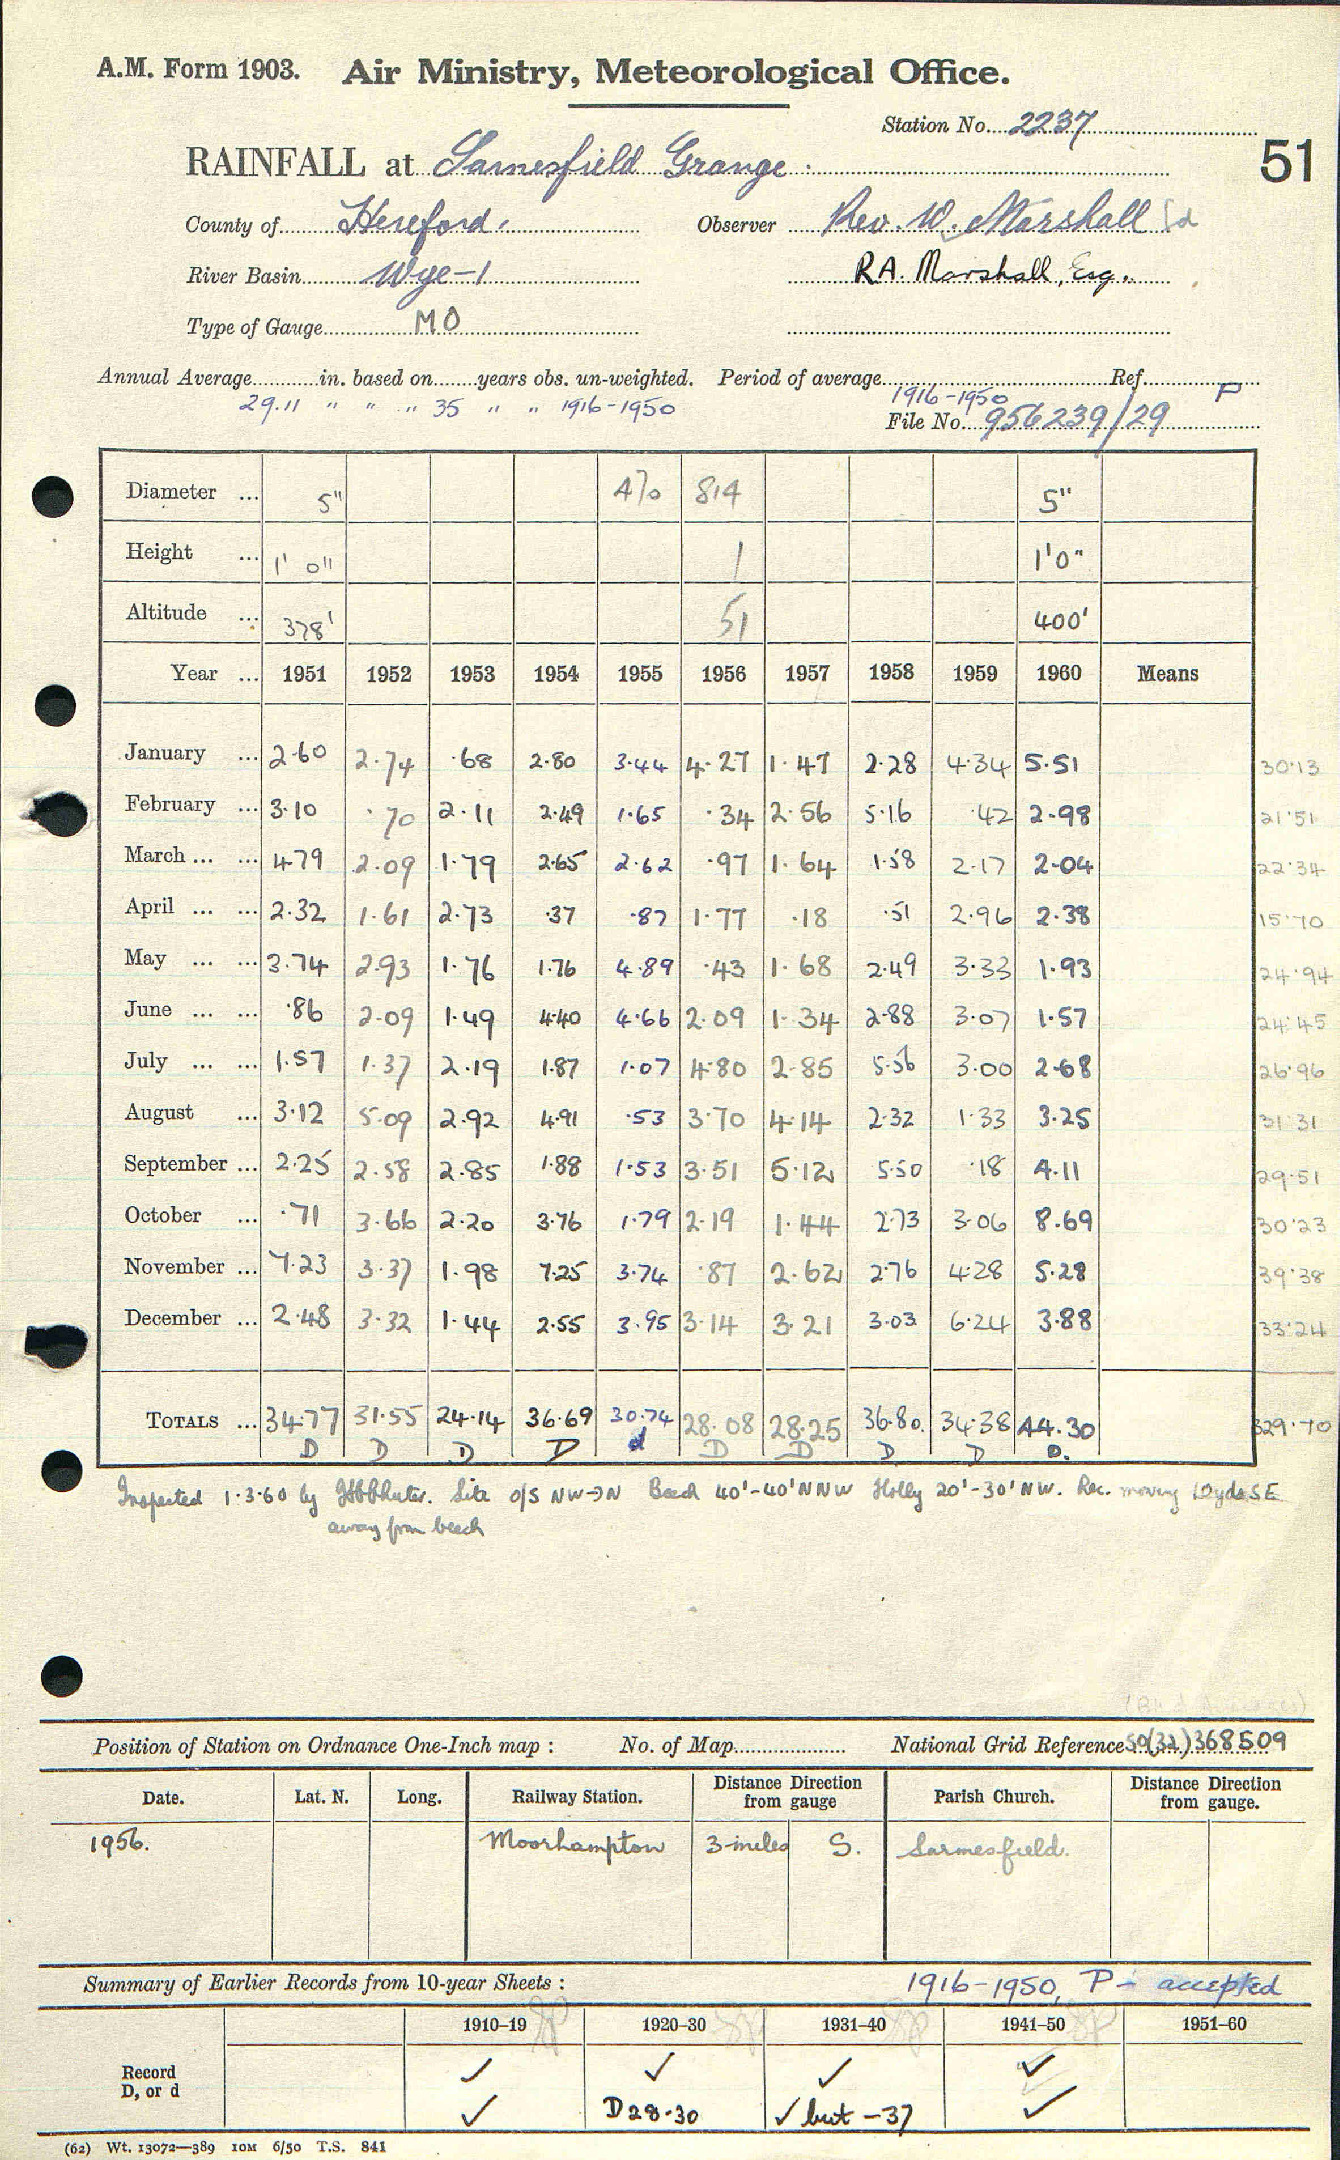 A.M. Form 1903. Air Ministry, Meteorological Office.
Station No. 2237
RAINFALL at Sarnesfield Grange. 51
County of Hereford. Observer Rev. W. Marshall [d
River Basin Wye-1 R.A. Marshall, Esq.
Type of Gauge MO
Annual Average in. based on years obs. un-weighted. Period of average 1916-1950 Ref. P
29.11 " " " 35 " " 1916-1950 File No. 956239/29
Diameter ... 5" A70 814 5"
Height ... 1' 0" 1 1'0"
Altitude ... 378' 51 400'
Year ... 1951 1952 1953 1954 1955 1956 1957 1958 1959 1960 Means
January ... 2.60 2.74 .68 2.80 3.44 4.27 1.47 2.28 4.34 5.51 30.13
February ... 3.10 .70 2.11 2.49 1.65 .34 2.56 5.16 .42 2.98 21.51
March ... ... 4.79 2.09 1.79 2.65 2.62 .97 1.64 1.58 2.17 2.04 22.34
April ... ... 2.32 1.61 2.73 .37 .87 1.77 .18 .51 2.96 2.38 15.70
May ... ... 3.74 2.93 1.76 1.76 4.89 .43 1.68 2.49 3.33 1.93 24.94
June ... ... .86 2.09 1.49 4.40 4.66 2.09 1.34 2.88 3.07 1.57 24.45
July ... ... 1.57 1.37 2.19 1.87 1.07 4.80 2.85 5.56 3.00 2.68 26.96
August ... 3.12 5.09 2.92 4.91 .53 3.70 4.14 2.32 1.33 3.25 31.31
September ... 2.25 2.58 2.85 1.88 1.53 3.51 5.12 5.50 .18 4.11 29.51
October ... .71 3.66 2.20 3.76 1.79 2.19 1.44 2.73 3.06 8.69 30.23
November ... 7.23 3.37 1.98 7.25 3.74 .87 2.62 2.76 4.28 5.28 39.38
December ... 2.48 3.32 1.44 2.55 3.95 3.14 3.21 3.03 6.24 3.88 33.24
TOTALS ... 34.77 31.55 24.14 36.69 30.74 28.08 28.25 36.80. 34.38 44.30 329.70
D D D D d D D D D D.
Inspected 1.3.60 by Site o/s NW→N Beech 40'-40' NNW Holly 20'-30' NW. Rec. moving 12yds SE
away from beech
Position of Station on Ordnance One-Inch map : No. of Map National Grid Reference SO(32)368509
Date. Lat. N. Long. Railway Station. Distance Direction from gauge Parish Church. Distance Direction from gauge.
1956. Moorhampton 3 miles S. Sarnesfield.
Summary of Earlier Records from 10-year Sheets : 1916-1950, P - accepted
1910-19 1920-30 1931-40 1941-50 1951-60
Record ✓ ✓ ✓ ✓
D, or d ✓ D 28-30 ✓ but -37 ✓
(62) Wt. 13072—389 10M 6/50 T.S. 841